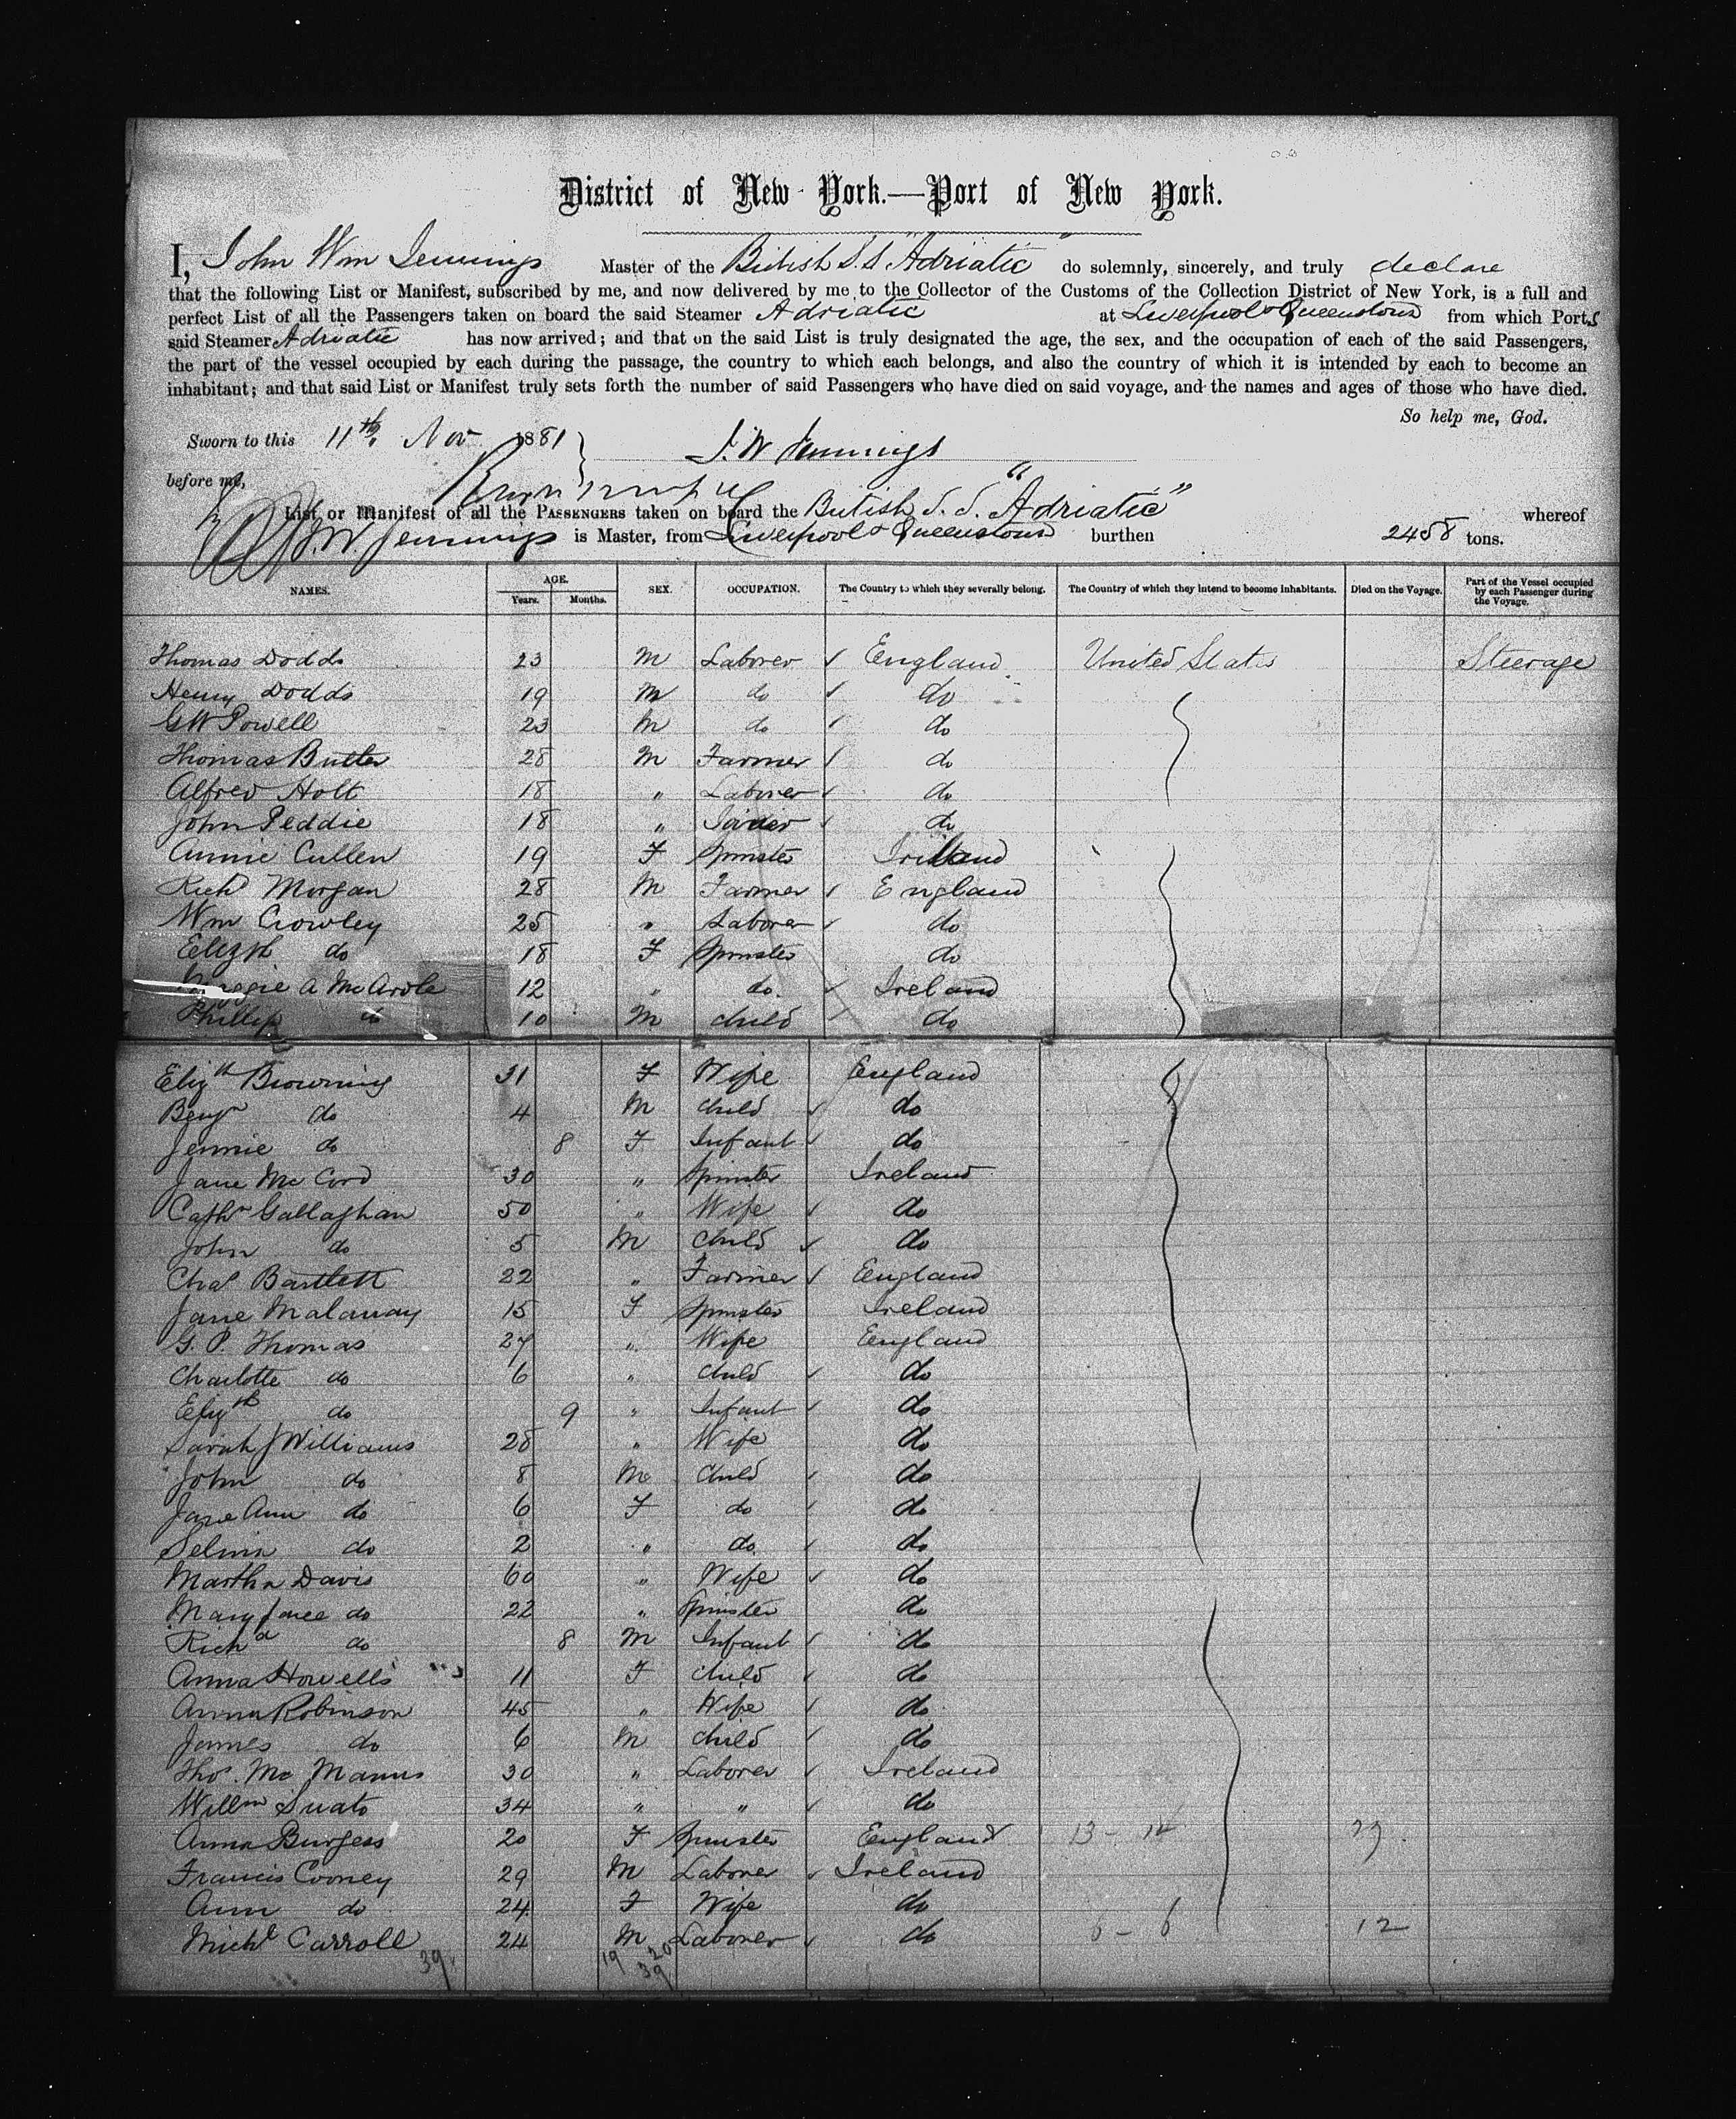 District of New York.—Port of New York.
I, John Wm Jennings Master of the British S.S. "Adriatic" do solemnly, sincerely, and truly declare
that the following List or Manifest, subscribed by me, and now delivered by me to the Collector of the Customs of the Collection District of New York, is a full and
perfect List of all the Passengers taken on board the said Steamer Adriatic at Liverpool & Queenstown from which Ports
said Steamer Adriatic has now arrived; and that on the said List is truly designated the age, the sex, and the occupation of each of the said Passengers,
the part of the vessel occupied by each during the passage, the country to which each belongs, and also the country of which it is intended by each to become an
inhabitant; and that said List or Manifest truly sets forth the number of said Passengers who have died on said voyage, and the names and ages of those who have died.
So help me, God.
Sworn to this 11th Nov 1881 J. W Jennings
before me,
List or Manifest of all the PASSENGERS taken on board the British S. S. "Adriatic" whereof
J. W. Jennings is Master, from Liverpool & Queenstown burthen 2458 tons.
NAMES. AGE. Years. Months. SEX. OCCUPATION. The Country to which they severally belong. The Country of which they intend to become inhabitants. Died on the Voyage. Part of the Vessel occupied by each Passenger during the Voyage.
Thomas Dodds 23 M Laborer England United States Steerage
Henry Dodds 19 M do do
GW Powell 23 M do do
Thomas Butler 28 M Farmer do
Alfred Holt 18 " Laborer do
John Peddie 18 " do
Annie Cullen 19 F Spinster Ireland
Richd Morgan 28 M Farmer England
Wm Crowley 25 " Laborer do
Elizth do 18 F Spinster do
Maggie A McArdle 12 " do Ireland
Phillip do 10 M child do
Elizth Browning 31 F Wife England
Benjn do 4 M child do
Jennie do 8 F Infant do
Jane McCord 30 " Spinster Ireland
Cathn Gallaghan 50 " Wife do
John do 5 M child do
Chas Bartlett 22 " Farmer England
Jane Malanay 15 F Spinster Ireland
G. P. Thomas 27 " Wife England
Charlotte do 6 " child do
Elizth do 9 " Infant do
Sarah J Williams 28 " Wife do
John do 8 M child do
Jane Ann do 6 F do do
Selina do 2 " do do
Martha Davis 60 " Wife do
Mary Jane do 22 " Spinster do
Richd do 8 M Infant do
Anna Howells 11 F child do
Anna Robinson 45 " Wife do
James do 6 M child do
Thos. McManus 30 " Laborer Ireland
Willm 34 " " do
Anna Burgess 20 F Spinster England 13 - 14 27
Francis Cooney 29 M Laborer Ireland
Ann do 24 F Wife do
Michl Carroll 24 M Laborer do 6 - 6 12
39 19 20
39